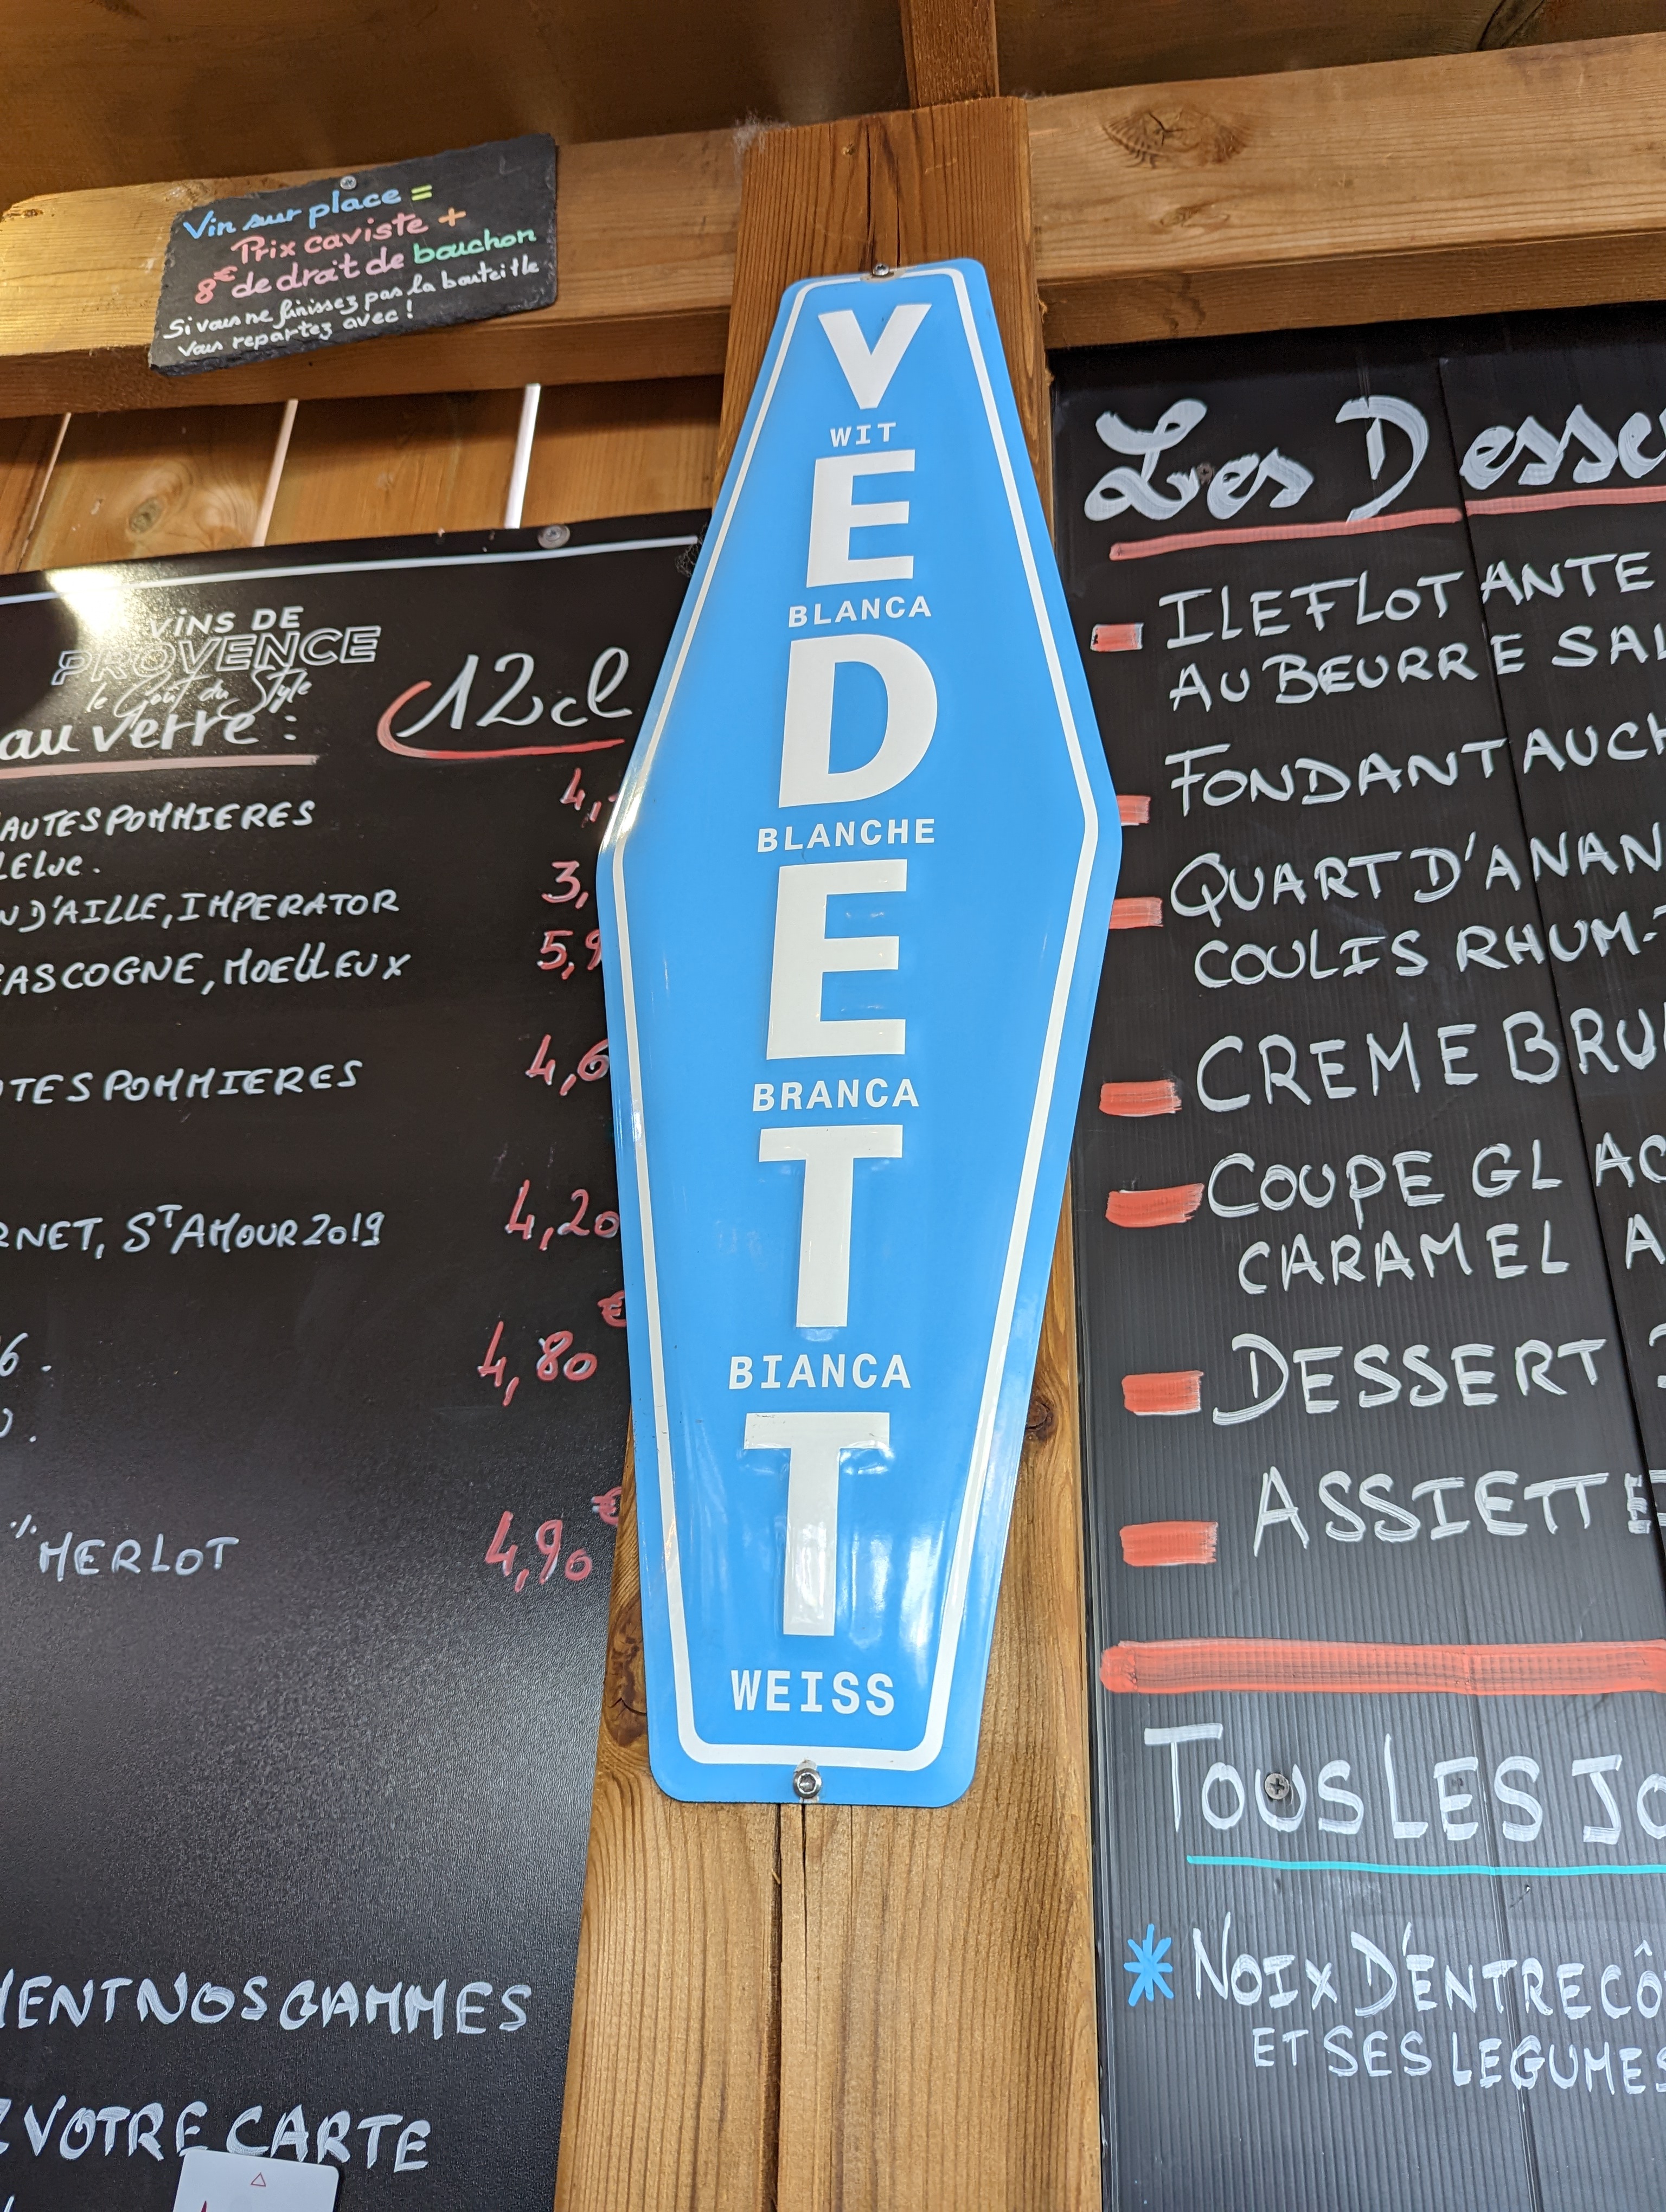 Vin sur place =
Prix caviste +
8€ de droit de bouchon
Si vous ne finissez pas la bouteille
vous repartez avec !
VINS DE
PROVENCE
le Goût du Style
au verre : 12cl
AUTES POMMIERES 4,
LELUC.
3,
N D'AILLE, IMPERATOR
5,9
ASCOGNE, MOELLEUX
4,6
TES POMMIERES
RNET, ST AMOUR 2019 4,20
6. 4,80 €
"MERLOT 4,90 €
MENT NOS GAMMES
Z VOTRE CARTE
V
WIT
E
BLANCA
D
BLANCHE
E
BRANCA
T
BIANCA
T
WEISS
Les Desse
ILE FLOTANTE
AU BEURRE SAL
FONDANT AU CH
QUART D'ANAN
COULIS RHUM-
CREME BRU
COUPE GLAC
CARAMEL A
DESSERT
ASSIETTE
TOUS LES JO
* NOIX D'ENTRECÔ
ET SES LEGUMES